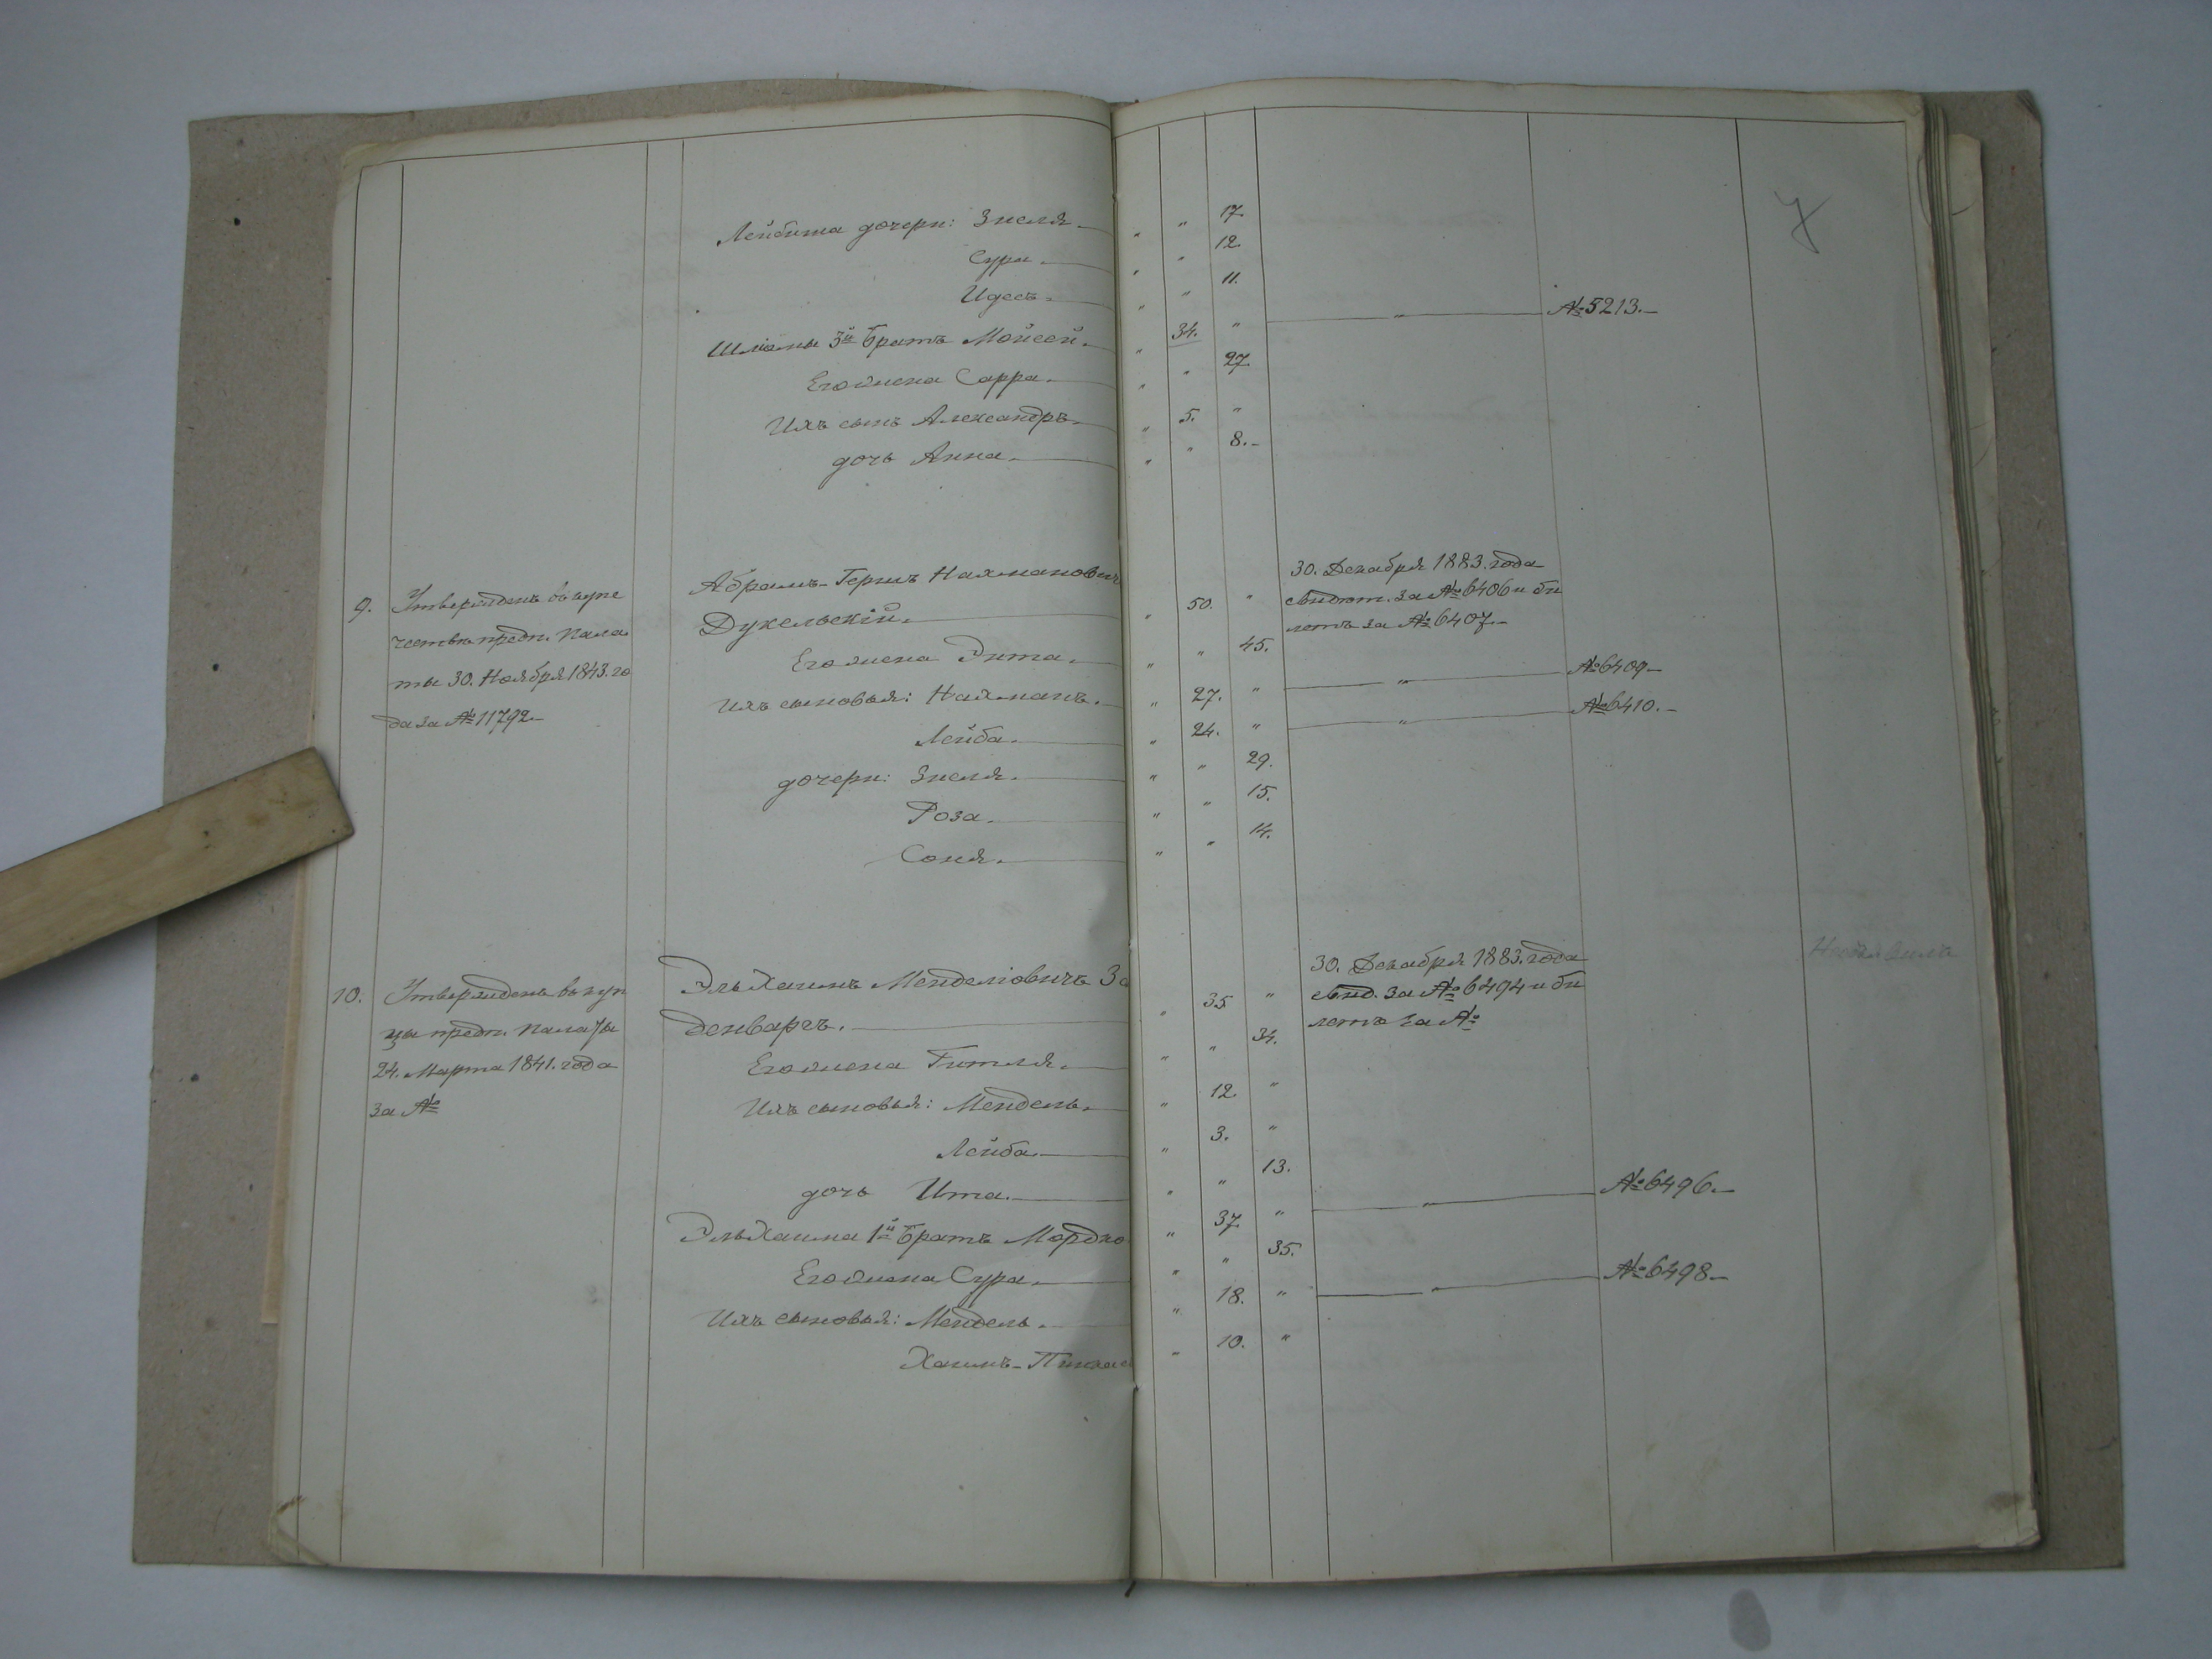 7
Лейбиша дочери: Знеля. " " 17.
Сура. " " 12.
Идесъ. " " 11.
Шліомы 3й братъ Мойсей. " 34. " " №5213.
Его жена Сарра. " " 27.
Ихъ сынъ Александръ " 5. "
дочь Анна. " " 8.
9. Утвержденъ въ купе
честве предп. Пала
ты 30. Ноября 1843. го
да за №11792
Абрамъ-Гершъ Нахманович
Дукельскій. " 50. "
30. Декабря 1883. года
свидѣт. за №6406 и би
летъ за №6407.
Его жена Энта. " " 45.
Ихъ сыновья: Нахманъ. " 27. " " №6409
Лейба. " 24. " " №6410.
дочери: Знеля. " " 29.
Роза. " " 15.
Соня. " " 14.
10. Утвержденъ въ куп
цы предп. Палаты
24. Марта 1841. года
за №
Эль Хаимъ Менделіовичъ За
денваргъ. " 35 "
30. Декабря 1883. года
свид. за №6494 и би
летъ за №
Его жена Гитля. " " 34.
Ихъ сыновья: Мендель. " 12. "
Лейба. " 3. "
дочь Ита. " " 13.
Эль Хаима 1й братъ Мордко " 37. " " №6496.
Его жена Сура. " " 35.
Ихъ сыновья: Мендель. " 18. " " №6498
Хаимъ-Пинхас " 10. "